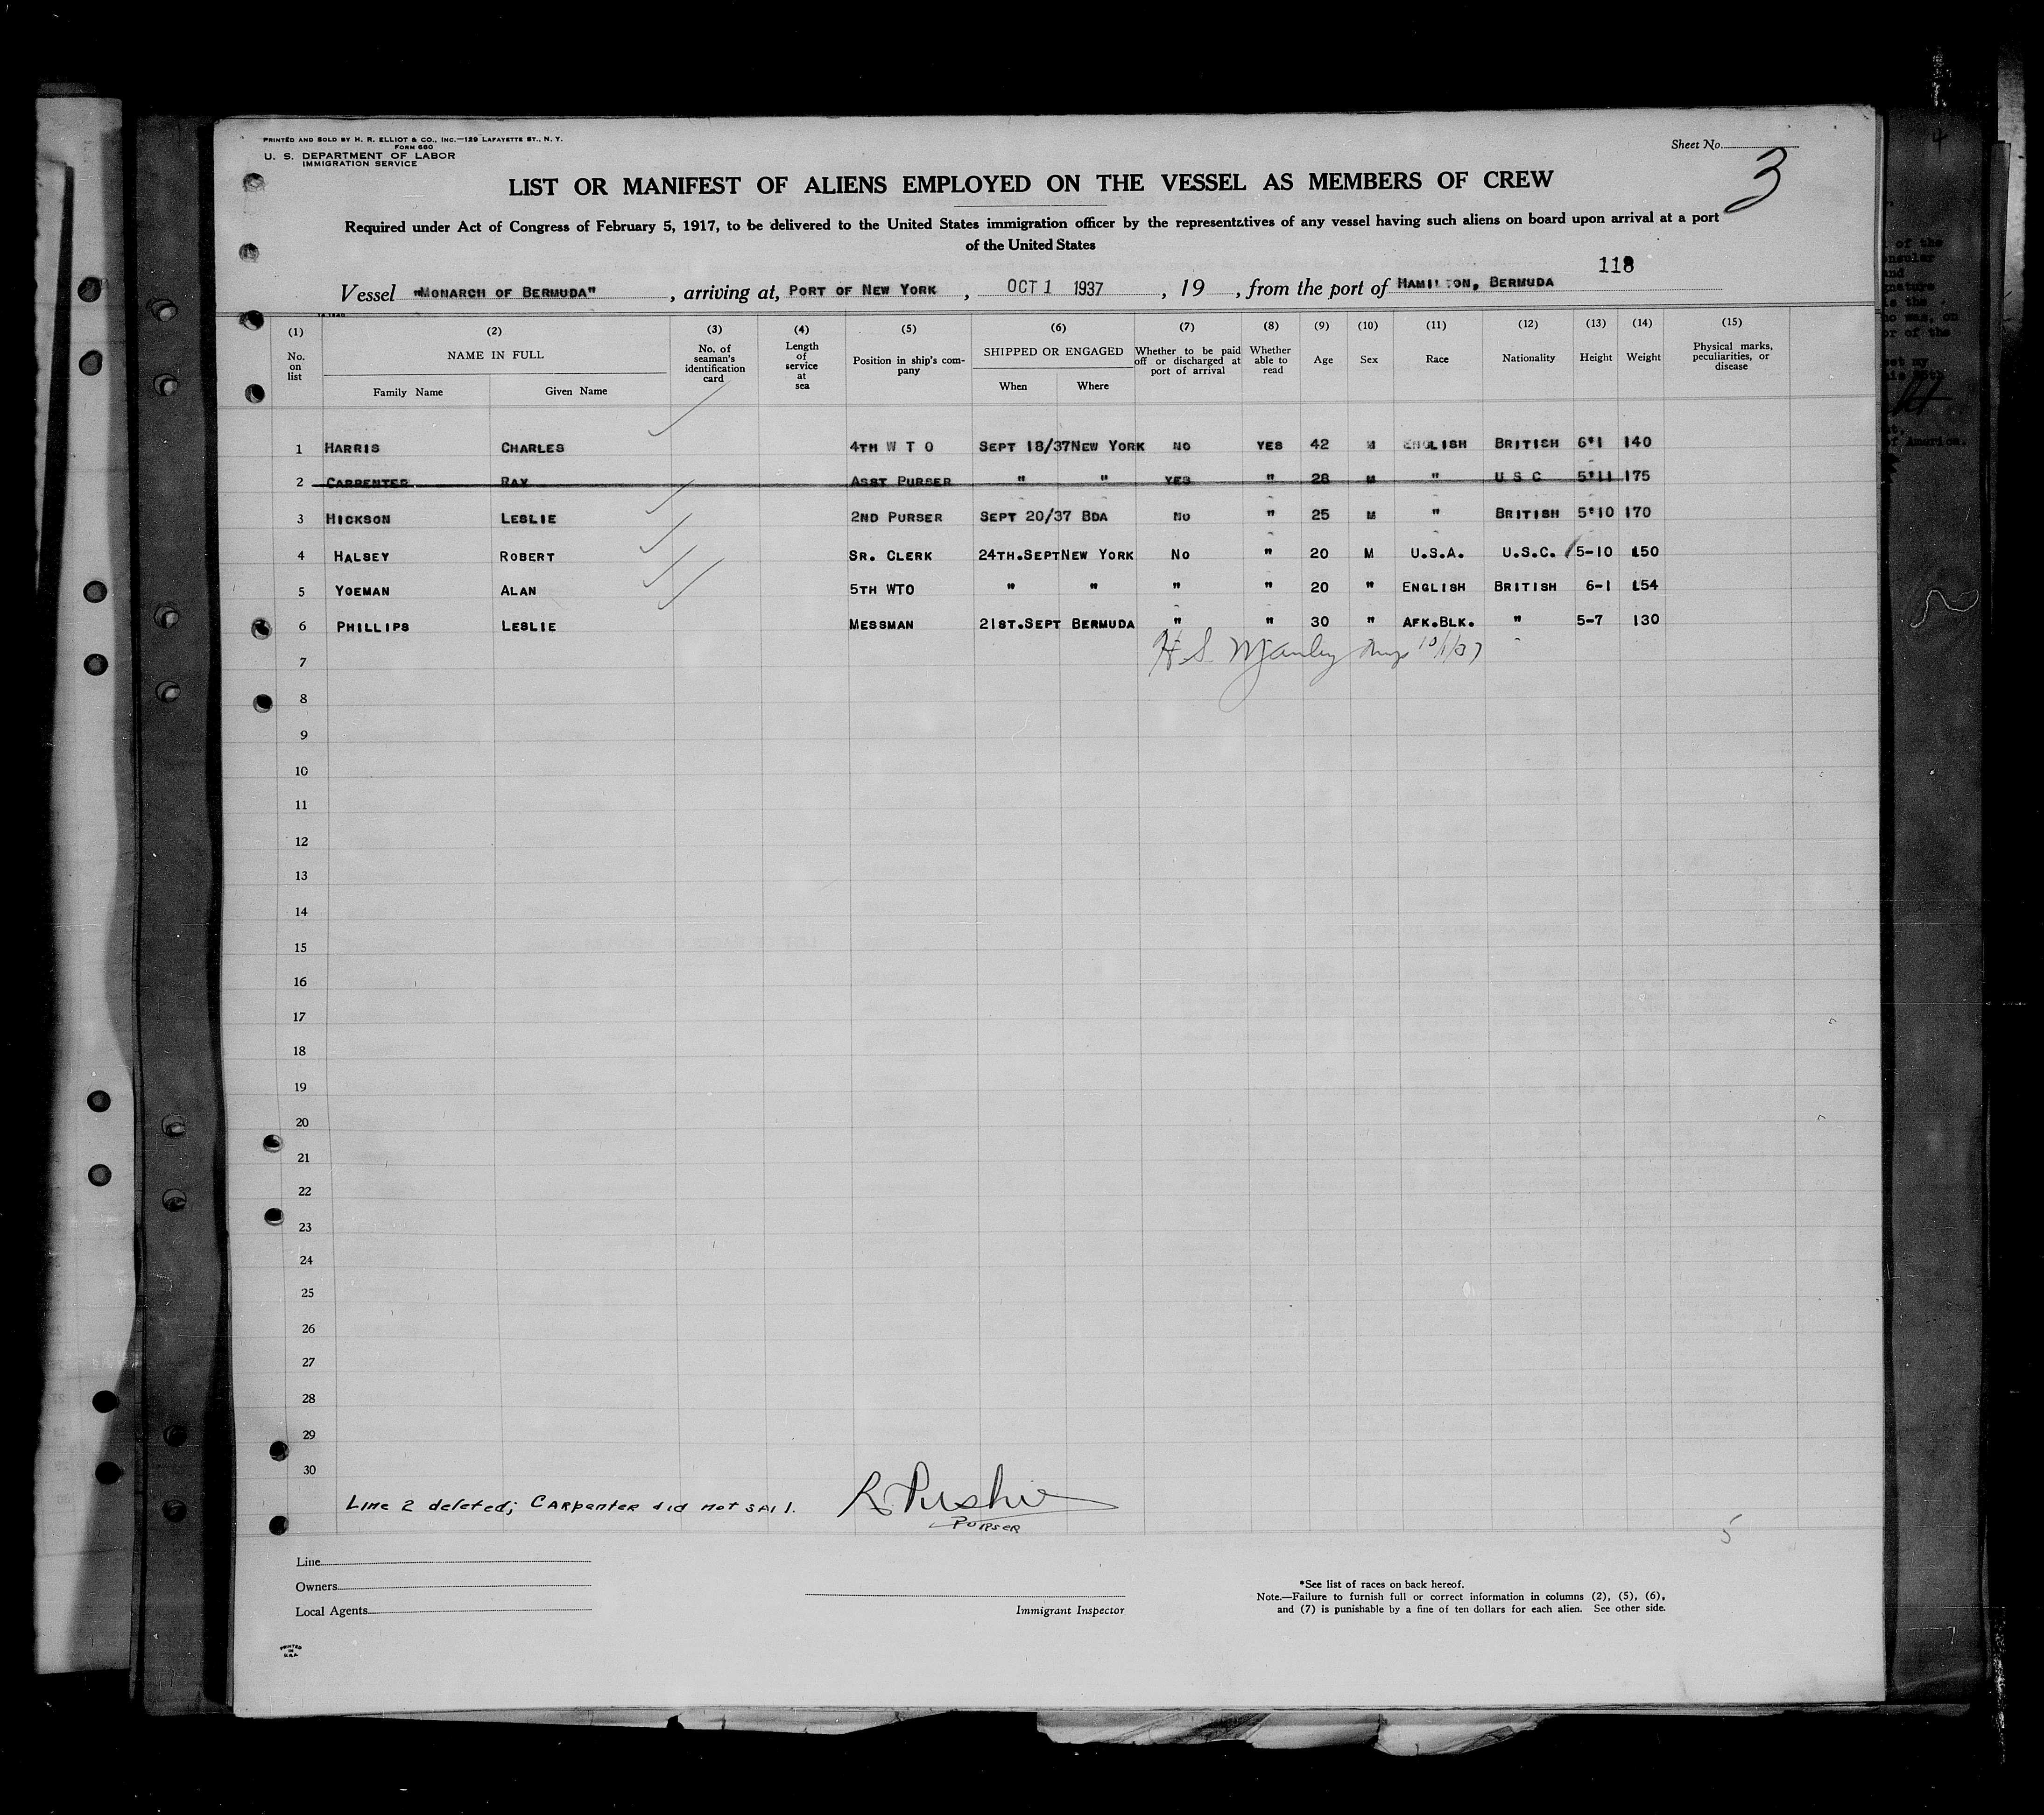 PRINTED AND SOLD BY H. R. ELLIOT & CO., INC.—129 LAFAYETTE ST., N. Y.
FORM 680
U. S. DEPARTMENT OF LABOR
IMMIGRATION SERVICE
Sheet No.
3
LIST OR MANIFEST OF ALIENS EMPLOYED ON THE VESSEL AS MEMBERS OF CREW
Required under Act of Congress of February 5, 1917, to be delivered to the United States immigration officer by the representatives of any vessel having such aliens on board upon arrival at a port
of the United States
118
Vessel "MONARCH OF BERMUDA", arriving at, PORT OF NEW YORK, OCT 1 1937, 19 , from the port of HAMILTON, BERMUDA
(1) (2) (3) (4) (5) (6) (7) (8) (9) (10) (11) (12) (13) (14) (15)
No. on list NAME IN FULL No. of seaman's identification card Length of service at sea Position in ship's company SHIPPED OR ENGAGED Whether to be paid off or discharged at port of arrival Whether able to read Age Sex Race Nationality Height Weight Physical marks, peculiarities, or disease
Family Name Given Name When Where
1 HARRIS CHARLES 4TH W T O SEPT 18/37 NEW YORK NO YES 42 M ENGLISH BRITISH 6'1 140
2 CARPENTER RAY ASST PURSER " " YES " 28 M " U S C 5'11 175
3 HICKSON LESLIE 2ND PURSER SEPT 20/37 BDA NO " 25 M " BRITISH 5'10 170
4 HALSEY ROBERT SR. CLERK 24TH.SEPT NEW YORK NO " 20 M U.S.A. U.S.C. 5-10 150
5 YOEMAN ALAN 5TH WTO " " " " 20 " ENGLISH BRITISH 6-1 154
6 PHILLIPS LESLIE MESSMAN 21ST.SEPT BERMUDA " " 30 " AFK.BLK. " 5-7 130
7 H S Manley 10/1/37
8
9
10
11
12
13
14
15
16
17
18
19
20
21
22
23
24
25
26
27
28
29
30
Line 2 deleted; Carpenter did not sail.
Purser
5
Line
Owners
Local Agents
Immigrant Inspector
*See list of races on back hereof.
Note.—Failure to furnish full or correct information in columns (2), (5), (6),
and (7) is punishable by a fine of ten dollars for each alien. See other side.
PRINTED
IN
U.S.A.